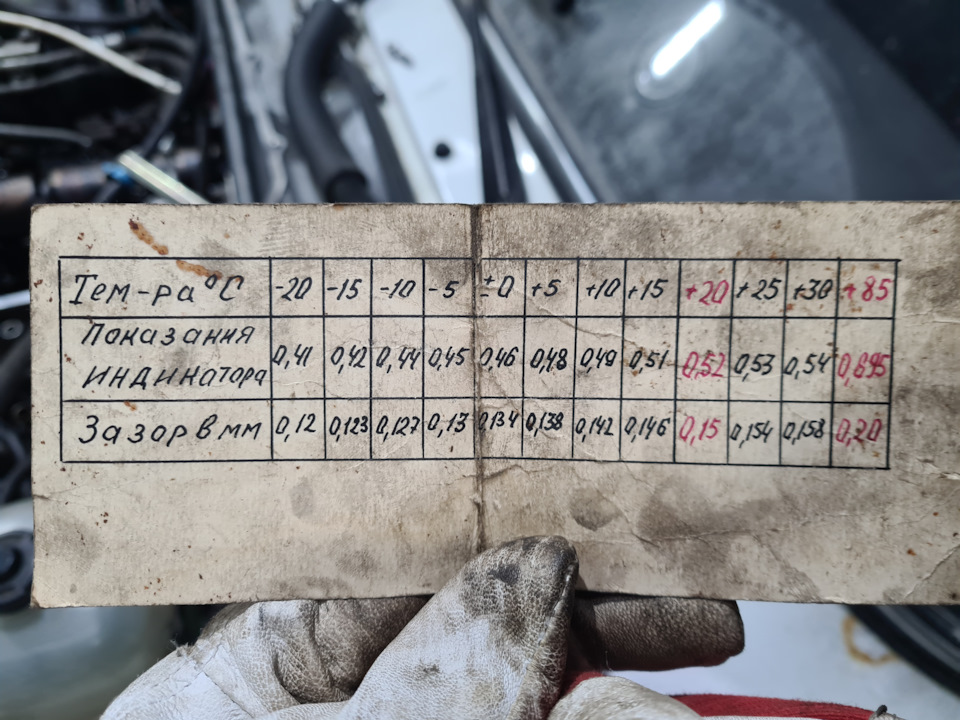 Тем-ра °С -20 -15 -10 -5 ±0 +5 +10 +15 +20 +25 +30 +85
Показания
индикатора 0,41 0,42 0,44 0,45 0,46 0,48 0,49 0,51 0,52 0,53 0,54 0,695
Зазор в мм 0,12 0,123 0,127 0,13 0,134 0,138 0,142 0,146 0,15 0,154 0,158 0,20